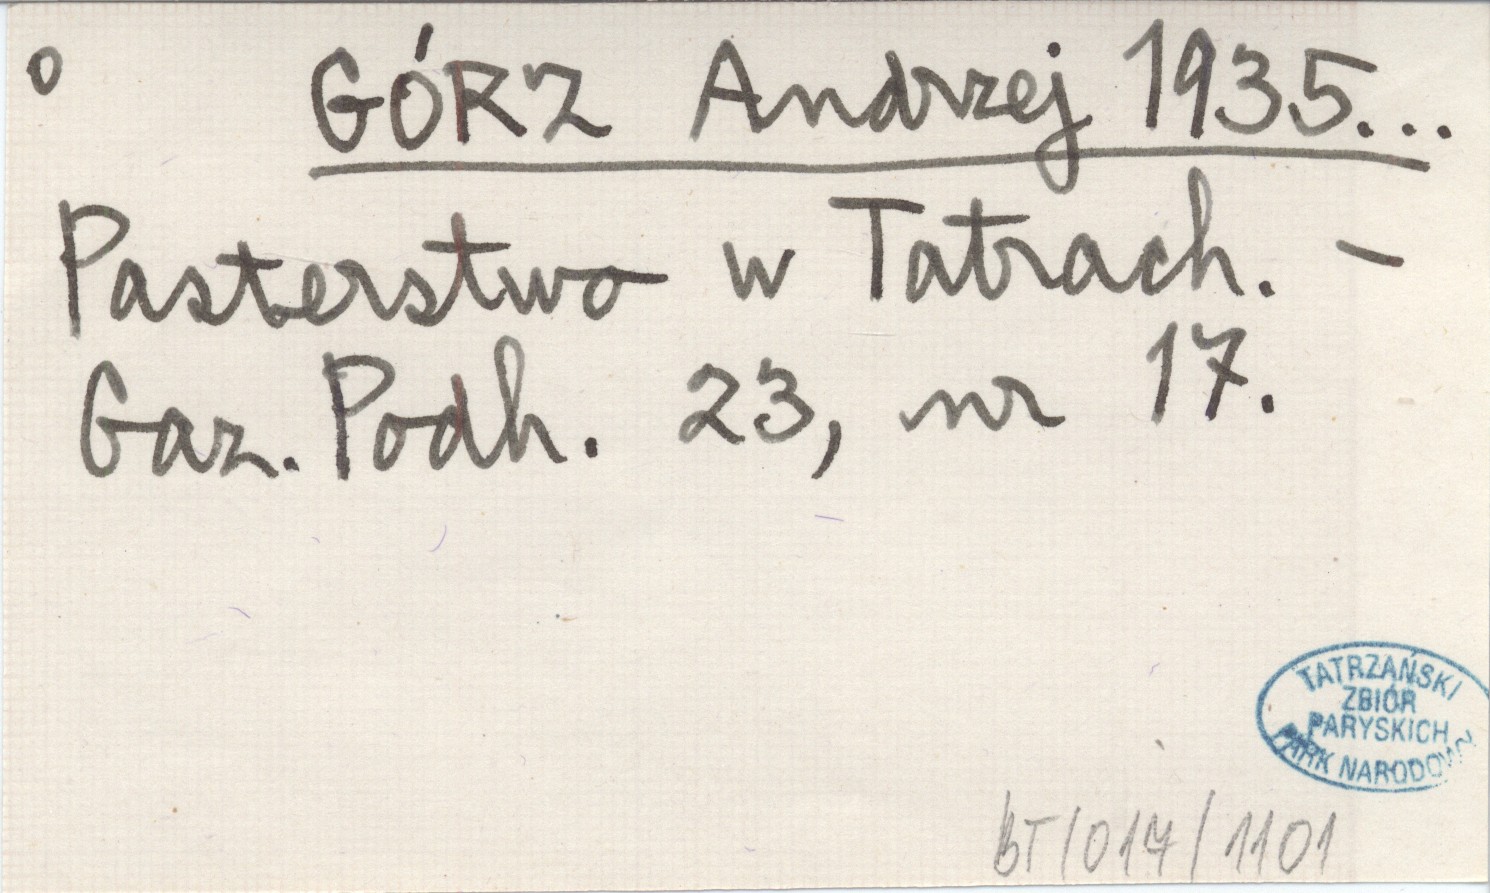 o GÓRZ Andrzej 1935...
Pasterstwo w Tatrach. -
Gaz. Podh. 23, nr 17.
TATRZAŃSKI
ZBIÓR
PARYSKICH
PARK NARODOWY
bT/017/1101